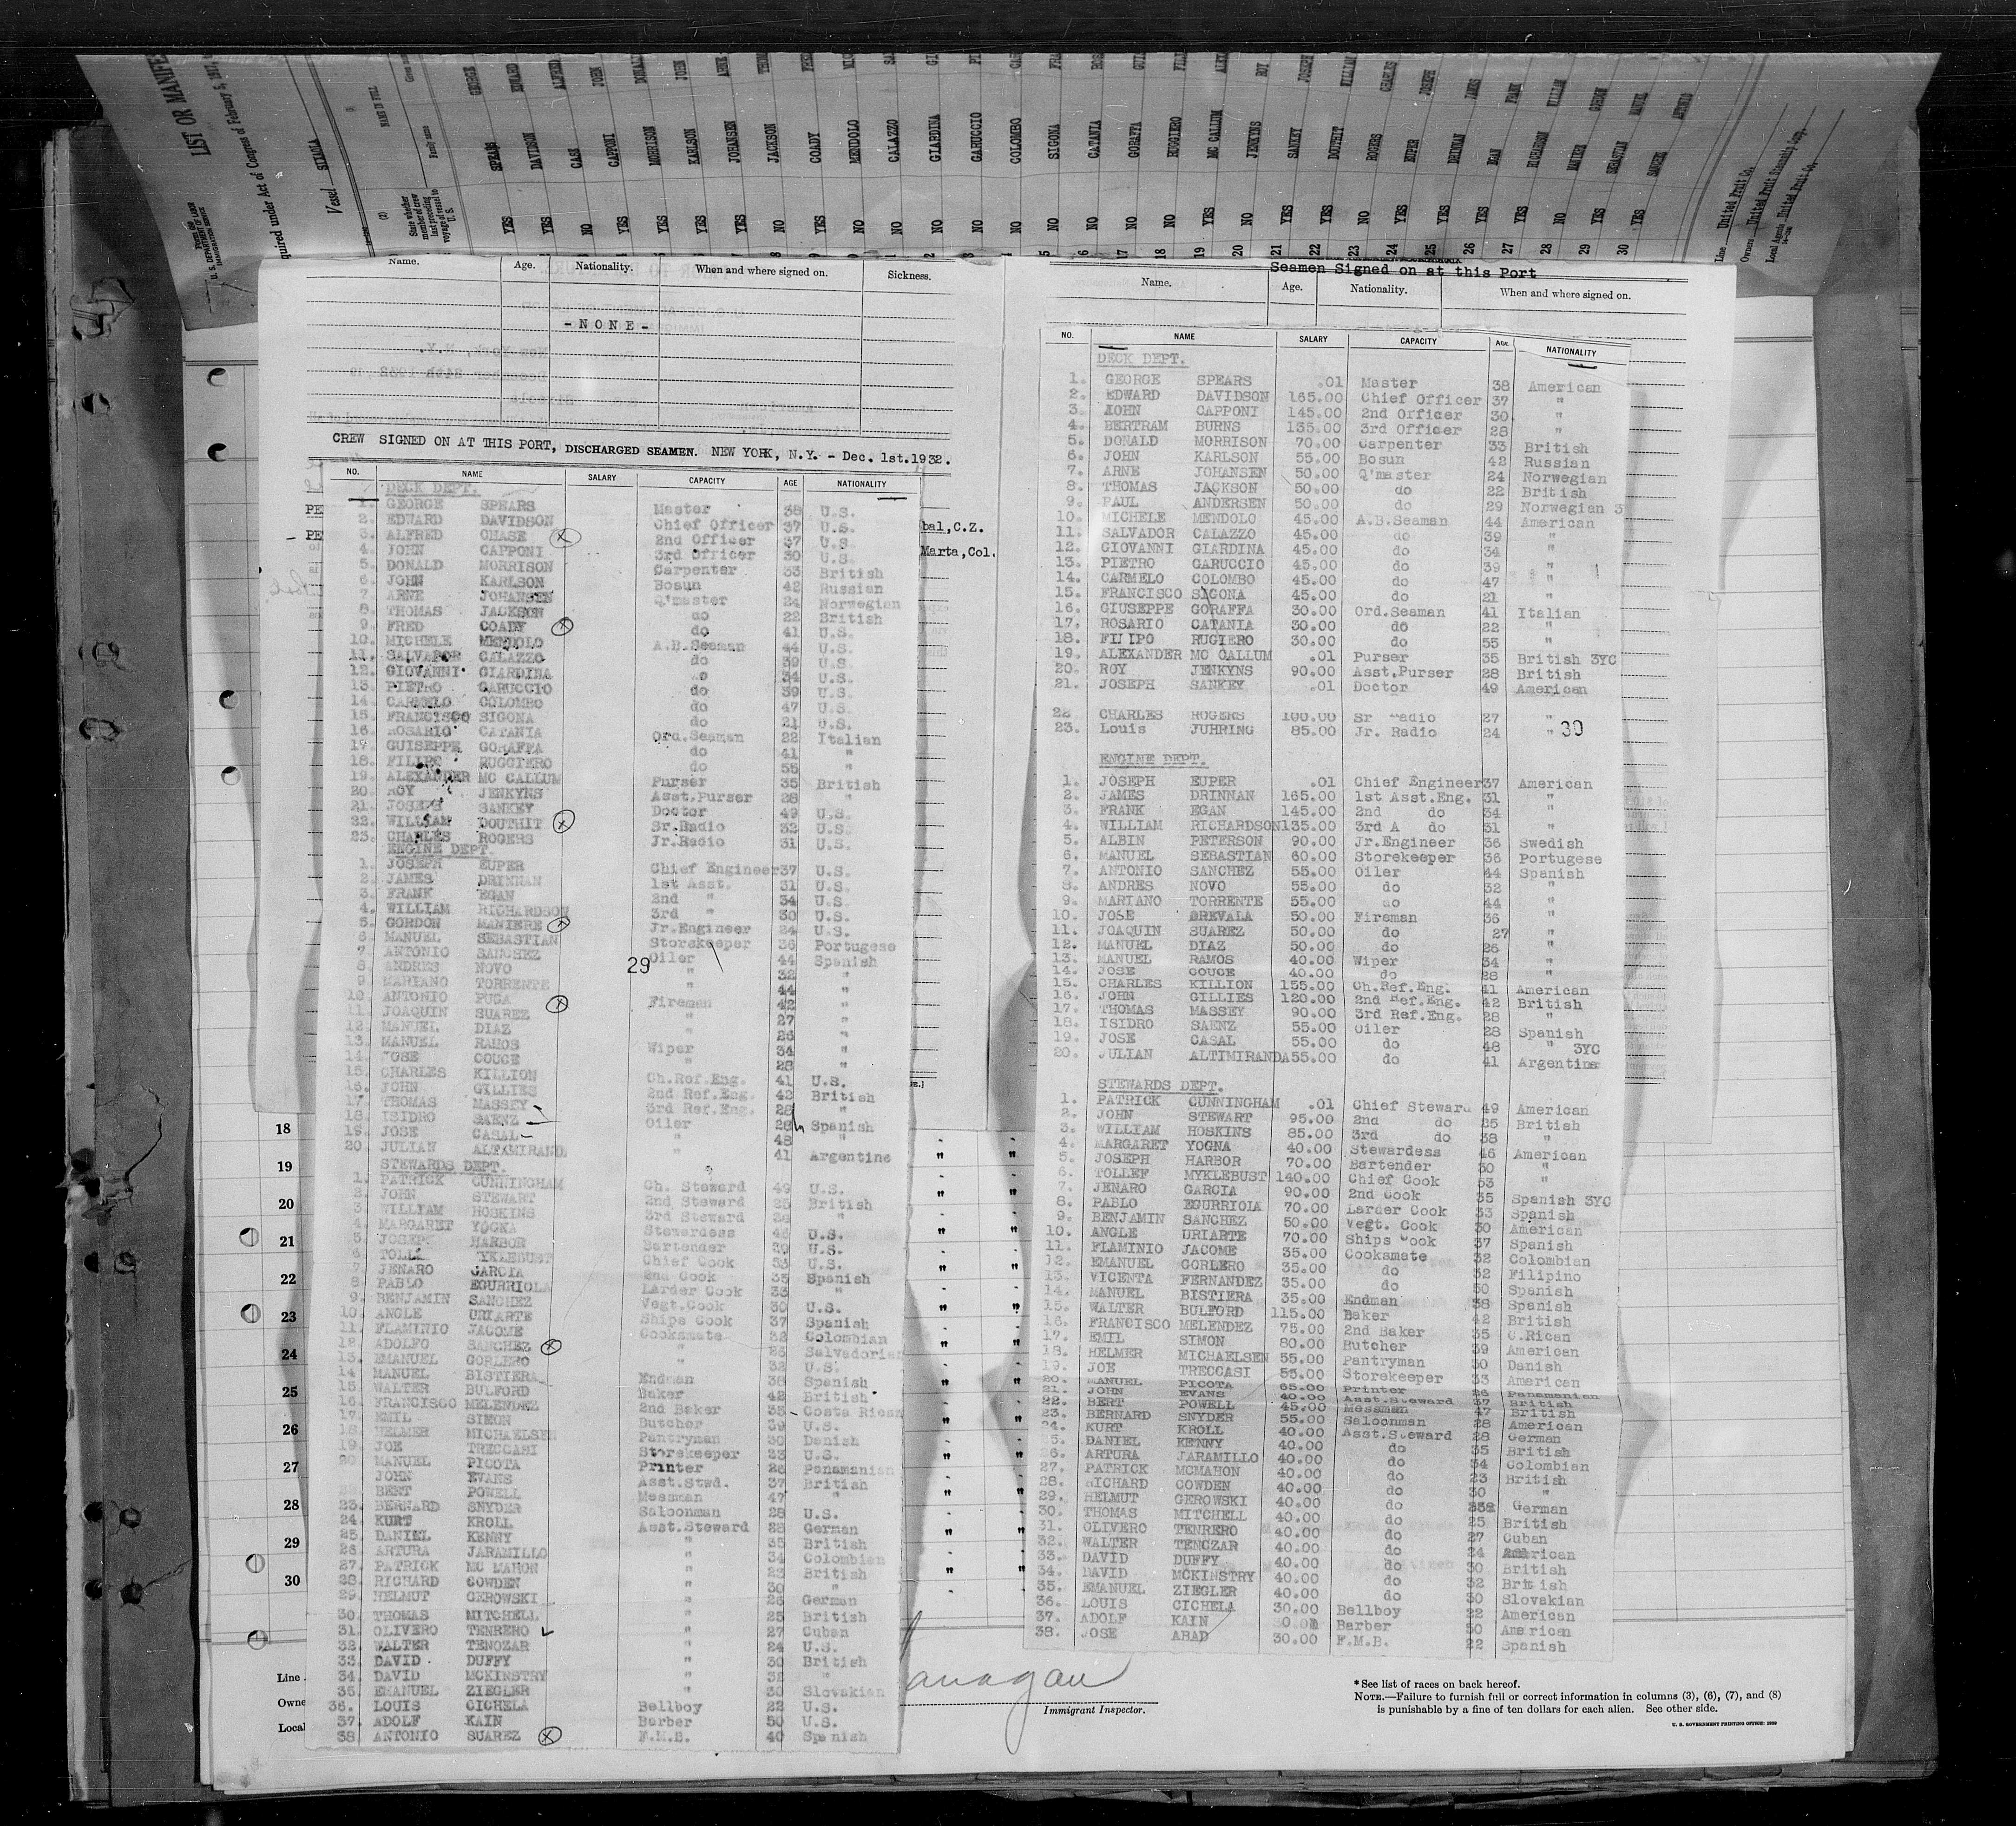 LIST OR MANIFE
quired under Act of Congress of February 5, 1917,
U. S. DEPARTMENT OF LABOR
IMMIGRATION SERVICE
Vessel SIXAOLA
NAME IN FULL
Family name
State whether member of crew last preceding voyage of vessel to U. S.
YES SPEARS GEORGE
YES DAVIDSON EDWARD
NO CASE ALFRED
YES CAPPONI JOHN
YES MORRISON DONALD
YES KARLSON JOHN
YES JOHANSEN ARNE
NO JACKSON THOM
YES COADY FRED
NO MENDOLO MIC
NO CALAZZO SA
NO GIARDINA GI
NO GARUCCIO PI
NO COLOMBO CAR
NO SIGONA FRA
NO CATANIA ROS
17 NO GORAFFA GUI
18 NO RUGGIERO FILI
19 YES MC CALLUM ALEX
20 NO JENKYNS ROY
21 YES SANKEY JOSEPH
22 YES DOUTHIT WILLIAM
23 NO ROGERS CHARLES
24 YES EUPER JOSEPH
25 YES DRINNAN JAMES
26 YES EGAN FRANK
27 YES RICHARDSON WILLIAM
28 NO MANIERE GORDON
29 YES SEBASTIAN MANUEL
30 YES SANCHEZ ANTONIO
Line United Fruit Co.
Owners United Fruit Steamship Corp.
Local Agents United Fruit Co.
Name. Age. Nationality. When and where signed on. Sickness.
-NONE-
CREW SIGNED ON AT THIS PORT, DISCHARGED SEAMEN. NEW YORK, N.Y. - Dec. 1st.1932.
NO. NAME SALARY CAPACITY AGE NATIONALITY
DECK DEPT.
1. GEORGE SPEARS Master 38 U.S.
2. EDWARD DAVIDSON Chief Officer 37 U.S.
3. ALFRED CHASE 2nd Officer 37 U.S.
4. JOHN CAPPONI 3rd Officer 30 U.S.
5. DONALD MORRISON Carpenter 33 British
6. JOHN KARLSON Bosun 42 Russian
7. ARNE JOHANSEN Q'master 24 Norwegian
8. THOMAS JACKSON do 22 British
9. FRED COADY do 41 U.S.
10. MICHELE MENDOLO A.B.Seaman 44 U.S.
11. SALVADOR CALAZZO do 39 U.S.
12. GIOVANNI GIARDINA do 34 U.S.
13. PIETRO GARUCCIO do 39 U.S.
14. CARMELO COLOMBO do 47 U.S.
15. FRANCISCO SIGONA do 21 U.S.
16. ROSARIO CATANIA Ord.Seaman 22 Italian
17. GUISEPPE GORAFFA do 41 "
18. FILIPE RUGGIERO do 55 "
19. ALEXANDER MC CALLUM Purser 35 British
20. ROY JENKYNS Asst.Purser 28 "
21. JOSEPH SANKEY Doctor 49 U.S.
22. WILLIAM DOUTHIT Sr.Radio 32 U.S.
23. CHARLES ROGERS Jr.Radio 31 U.S.
ENGINE DEPT.
1. JOSEPH EUPER Chief Engineer 37 U.S.
2. JAMES DRINNAN 1st Asst. 31 U.S.
3. FRANK EGAN 2nd " 34 U.S.
4. WILLIAM RICHARDSON 3rd " 30 U.S.
5. GORDON MANIERE Jr.Engineer 24 U.S.
6 MANUEL SEBASTIAN Storekeeper 36 Portugese
7 ANTONIO SANCHEZ 29 Oiler 44 Spanish
8. ANDRES NOVO " 32 "
9 MARIANO TORRENTE " 44 "
10. ANTONIO PUGA Fireman 42 "
11. JOAQUIN SUAREZ " 27 "
12. MANUEL DIAZ " 26 "
13. MANUEL RAMOS Wiper 34 "
14. JOSE COUCE " 28 "
15. CHARLES KILLION Ch.Ref.Eng. 41 U.S.
16. JOHN GILLIES 2nd Ref.Eng. 42 British
17. THOMAS MASSEY 3rd Ref.Eng. 28 "
18. ISIDRO SAENZ Oiler 28 Spanish
19. JOSE CASAL " 48 "
20 JULIAN ALTAMIRAND " 41 Argentine
STEWARDS DEPT.
1. PATRICK CUNNINGHAM Ch. Steward 49 U.S.
2. JOHN STEWART 2nd Steward 25 British
3 WILLIAM HOSKINS 3rd Steward 38 "
4. MARGARET YOGNA Stewardess 46 U.S.
5 JOSEPH HARBOR Bartender 30 U.S.
6 TOLL YKLEBUST Chief Cook 53 U.S.
7. JENARO GARCIA 2nd Cook 35 Spanish
8. PABLO EGURRIOLA Larder Cook 33 "
9. BENJAMIN SANCHEZ Vegt.Cook 30 U.S.
10. ANGLE URIARTE Ships Cook 37 Spanish
11. FLAMINIO JACOME Cooksmate 32 Colombian
12 ADOLFO SANCHEZ " 26 Salvadorian
13. EMANUEL GORLERO " 32 U.S.
14 MANUEL BISTIERA Endman 38 Spanish
15. WALTER BULFORD Baker 42 British
16. FRANCISCO MELENDEZ 2nd Baker 35 Costa Rican
17. EMIL SIMON Butcher 39 U.S.
18. HELMER MICHAELSEN Pantryman 30 Danish
19. JOE TRECCASI Storekeeper 33 U.S.
20 MANUEL PICOTA Printer 26 Panamanian
JOHN EVANS Asst.Stwd. 37 British
BERT POWELL Messman 47 "
23. BERNARD SNYDER Saloonman 28 U.S.
24. KURT KROLL Asst.Steward 28 German
25. DANIEL KENNY " 35 British
26. ARTURA JARAMILLO " 34 Colombian
27. PATRICK MC MAHON " 23 British
28. RICHARD COWDEN " 30 "
29. HELMUT GEROWSKI " 26 German
30. THOMAS MITCHELL " 25 British
31. OLIVERO TENRERO " 27 Cuban
32. WALTER TENCZAR " 24 U.S.
33. DAVID DUFFY " 30 British
34. DAVID MCKINSTRY " 32 "
35. EMANUEL ZIEGLER " 30 Slovakian
36. LOUIS CICHELA Bellboy 22 U.S.
37. ADOLF KAIN Barber 50 U.S.
38. ANTONIO SUAREZ F.M.B. 40 Spanish
bal,C.Z.
Marta,Col.
Seamen Signed on at this Port
Name. Age. Nationality. When and where signed on.
NO. NAME SALARY CAPACITY AGE NATIONALITY
DECK DEPT.
1. GEORGE SPEARS .01 Master 38 American
2. EDWARD DAVIDSON 165.00 Chief Officer 37 "
3. JOHN CAPPONI 145.00 2nd Officer 30 "
4. BERTRAM BURNS 135.00 3rd Officer 28 "
5. DONALD MORRISON 70.00 Carpenter 33 British
6. JOHN KARLSON 55.00 Bosun 42 Russian
7. ARNE JOHANSEN 50.00 Q'master 24 Norwegian
8. THOMAS JACKSON 50.00 do 22 British
9. PAUL ANDERSEN 50.00 do 29 Norwegian 3
10. MICHELE MENDOLO 45.00 A.B.Seaman 44 American
11. SALVADOR CALAZZO 45.00 do 39 "
12. GIOVANNI GIARDINA 45.00 do 34 "
13. PIETRO GARUCCIO 45.00 do 39 "
14. CARMELO COLOMBO 45.00 do 47 "
15. FRANCISCO SIGONA 45.00 do 21 "
16. GIUSEPPE GORAFFA 30.00 Ord.Seaman 41 Italian
17. ROSARIO CATANIA 30.00 do 22 "
18. FILIPO RUGIERO 30.00 do 55 "
19. ALEXANDER MC CALLUM .01 Purser 35 British 3YC
20. ROY JENKYNS 90.00 Asst.Purser 28 British
21. JOSEPH SANKEY .01 Doctor 49 American
22 CHARLES ROGERS 100.00 Sr Radio 27 "
23. Louis JUHRING 85.00 Jr. Radio 24 " 30
ENGINE DEPT.
1. JOSEPH EUPER .01 Chief Engineer 37 American
2. JAMES DRINNAN 165.00 1st Asst.Eng. 31 "
3. FRANK EGAN 145.00 2nd do 34 "
4. WILLIAM RICHARDSON 135.00 3rd A do 31 "
5. ALBIN PETERSON 90.00 Jr.Engineer 36 Swedish
6. MANUEL SEBASTIAN 60.00 Storekeeper 36 Portugese
7. ANTONIO SANCHEZ 55.00 Oiler 44 Spanish
8. ANDRES NOVO 55.00 do 32 "
9. MARIANO TORRENTE 55.00 do 44 "
10. JOSE DREVALA 50.00 Fireman 36 "
11. JOAQUIN SUAREZ 50.00 do 27 "
12. MANUEL DIAZ 50.00 do 26 "
13. MANUEL RAMOS 40.00 Wiper 34 "
14. JOSE COUCE 40.00 do 28 "
15. CHARLES KILLION 155.00 Ch.Ref.Eng. 41 American
16. JOHN GILLIES 120.00 2nd Ref.Eng. 42 British
17. THOMAS MASSEY 90.00 3rd Ref.Eng. 28 "
18. ISIDRO SAENZ 55.00 Oiler 28 Spanish
19. JOSE CASAL 55.00 do 48 " 3YC
20. JULIAN ALTIMIRANDA 55.00 do 41 Argentina
STEWARDS DEPT.
1. PATRICK CUNNINGHAM .01 Chief Steward 49 American
2. JOHN STEWART 95.00 2nd do 25 British
3. WILLIAM HOSKINS 85.00 3rd do 38 "
4. MARGARET YOGNA 40.00 Stewardess 46 American
5. JOSEPH HARBOR 70.00 Bartender 30 "
6. TOLLEF MYKLEBUST 140.00 Chief Cook 53 "
7. JENARO GARCIA 90.00 2nd Cook 35 Spanish 3YC
8. PABLO EGURRIOIA 70.00 Larder Cook 33 Spanish
9. BENJAMIN SANCHEZ 50.00 Vegt. Cook 30 American
10. ANGLE URIARTE 70.00 Ships Cook 37 Spanish
11. FLAMINIO JACOME 35.00 Cooksmate 32 Colombian
12. EMANUEL GORLERO 35.00 do 32 Filipino
13. VICENTA FERNANDEZ 35.00 do 50 Spanish
14. MANUEL BISTIERA 35.00 Endman 38 Spanish
15. WALTER BULFORD 115.00 Baker 42 British
16. FRANCISCO MELENDEZ 75.00 2nd Baker 35 C.Rican
17. EMIL SIMON 80.00 Butcher 39 American
18. HELMER MICHAELSEN 55.00 Pantryman 30 Danish
19. JOE TRECCASI 55.00 Storekeeper 33 American
20. MANUEL PICOTA 65.00 Printer 26 Panamanian
21. JOHN EVANS 40.00 Asst.Steward 37 British
22. BERT POWELL 45.00 Messman 47 British
23. BERNARD SNYDER 55.00 Saloonman 28 American
24. KURT KROLL 40.00 Asst.Steward 28 German
25. DANIEL KENNY 40.00 do 35 British
26. ARTURA JARAMILLO 40.00 do 34 Colombian
27. PATRICK MCMAHON 40.00 do 23 British
28. RICHARD COWDEN 40.00 do 30 "
29. HELMUT GEROWSKI 40.00 do German
30. THOMAS MITCHELL 40.00 do 25 British
31. OLIVERO TENRERO 40.00 do 27 Cuban
32. WALTER TENCZAR 40.00 do 24 American
33. DAVID DUFFY 40.00 do 30 British
34. DAVID MCKINSTRY 40.00 do 32 British
35. EMANUEL ZIEGLER 40.00 do 30 Slovakian
36. LOUIS CICHELA 30.00 Bellboy 22 American
37. ADOLF KAIN Barber 50 American
38. JOSE ABAD 30.00 F.M.B. 22 Spanish
18
19
20
21
22
23
24
25
26
27
28
29
30
Line
Owne
Local
anagan
Immigrant Inspector.
*See list of races on back hereof.
NOTE.—Failure to furnish full or correct information in columns (3), (6), (7), and (8)
is punishable by a fine of ten dollars for each alien. See other side.
U. S. GOVERNMENT PRINTING OFFICE: 1929